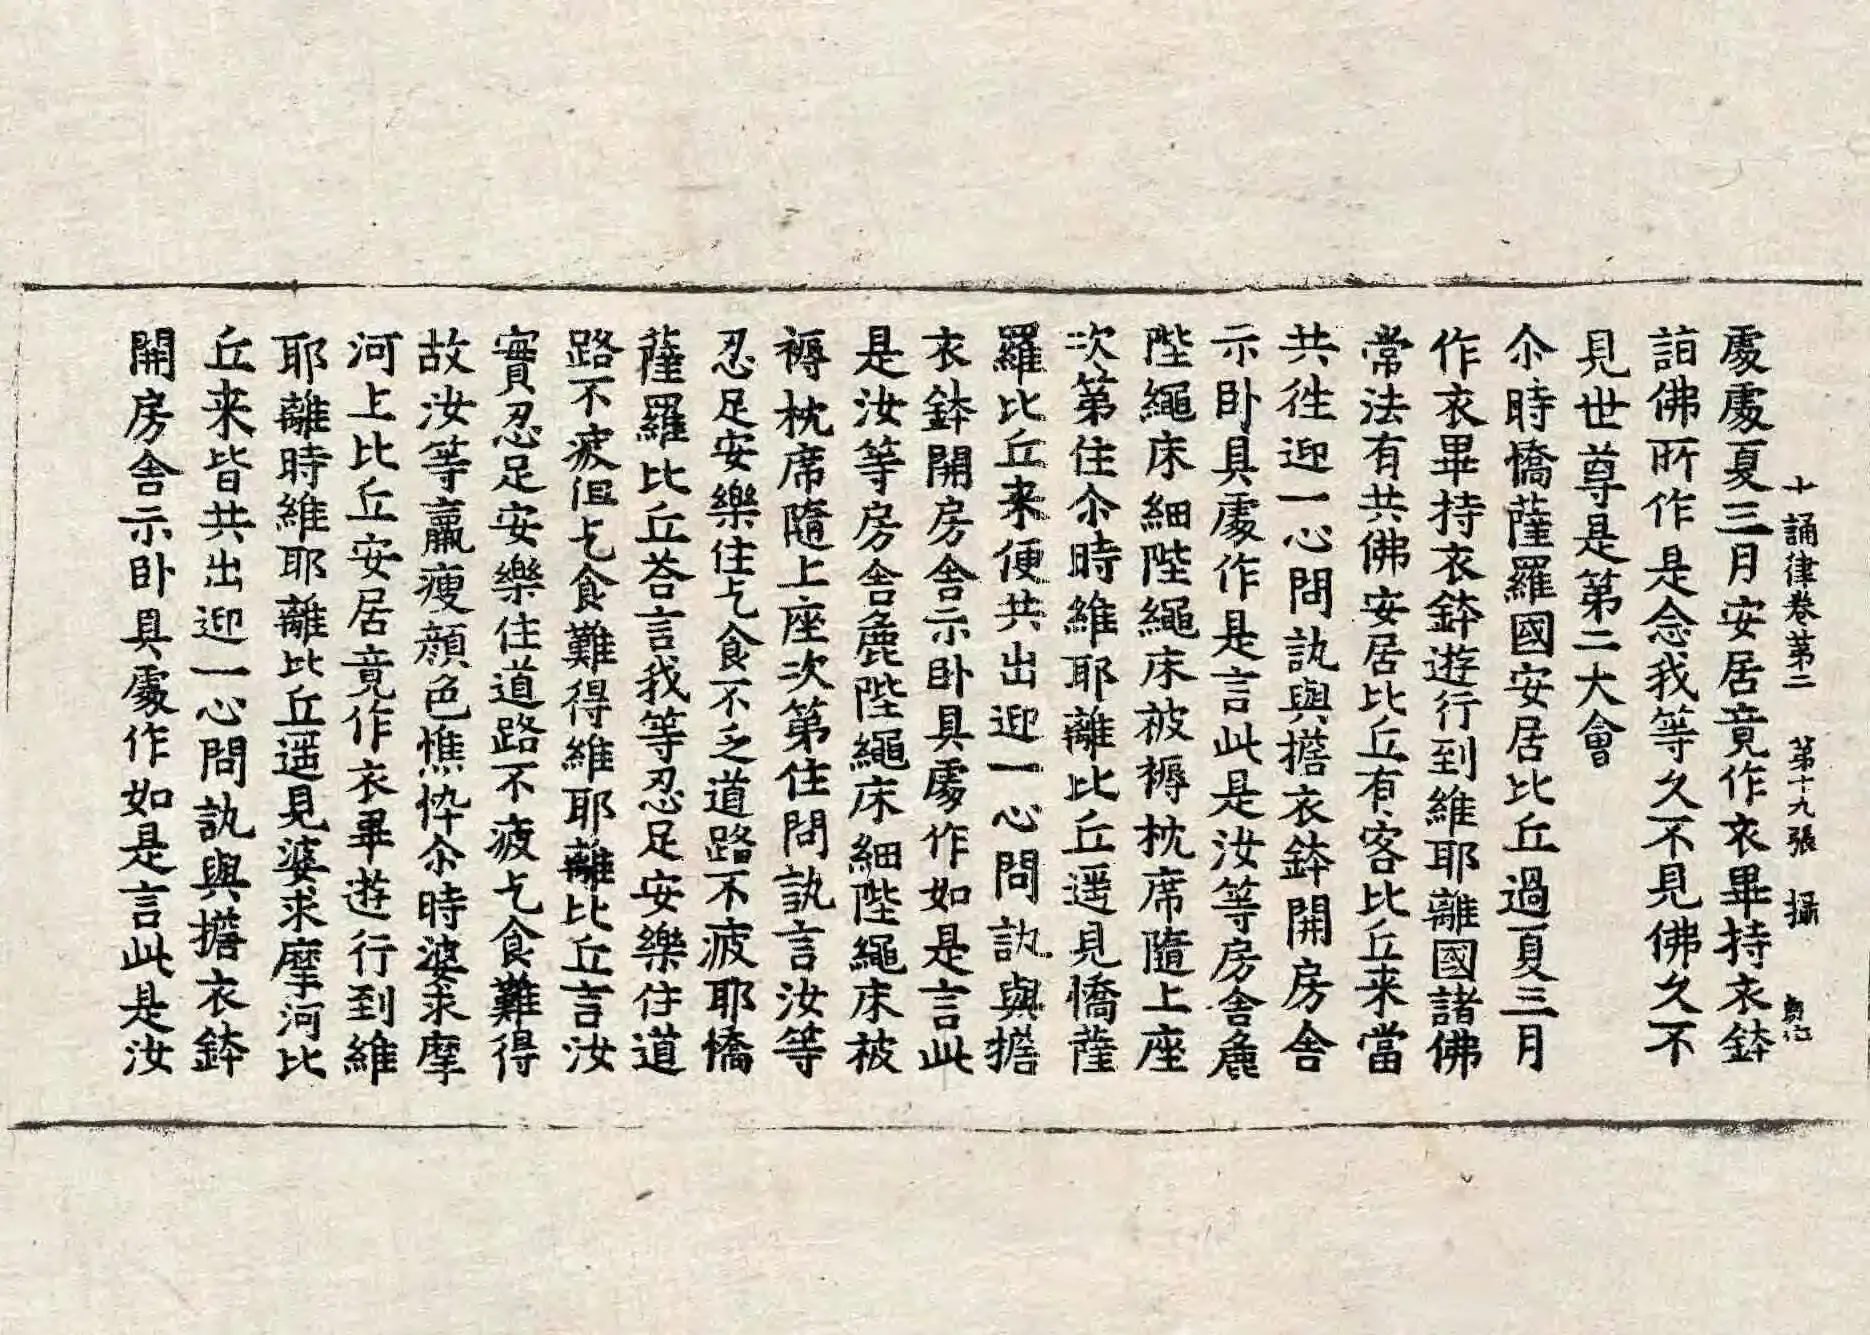 十誦律卷第二 第十九張 攝
處處夏三月安居竟作衣畢持衣鉢
詣佛所作是念我等久不見佛久不
見世尊是第二大會
尒時憍薩羅國安居比丘過夏三月
作衣畢持衣鉢遊行到維耶離國諸佛
常法有共佛安居比丘有客比丘来當
共徃迎一心問訊與擔衣鉢開房舍
示卧具處作是言此是汝等房舍麁
陛繩床細陛繩床被褥枕席隨上座
次第住尒時維耶離比丘遥見憍薩
羅比丘来便共出迎一心問訊與擔
衣鉢開房舍示卧具處作如是言此
是汝等房舍麁陛繩床細陛繩床被
褥枕席隨上座次第住問訊言汝等
忍足安樂住乞食不乏道路不疲耶憍
薩羅比丘荅言我等忍足安樂住道
路不疲但乞食難得維耶離比丘言汝
實忍足安樂住道路不疲乞食難得
故汝等羸瘦顔色憔悴尒時婆求摩
河上比丘安居竟作衣畢遊行到維
耶離時維耶離比丘遥見婆求摩河比
丘来皆共出迎一心問訊與擔衣鉢
開房舍示卧具處作如是言此是汝